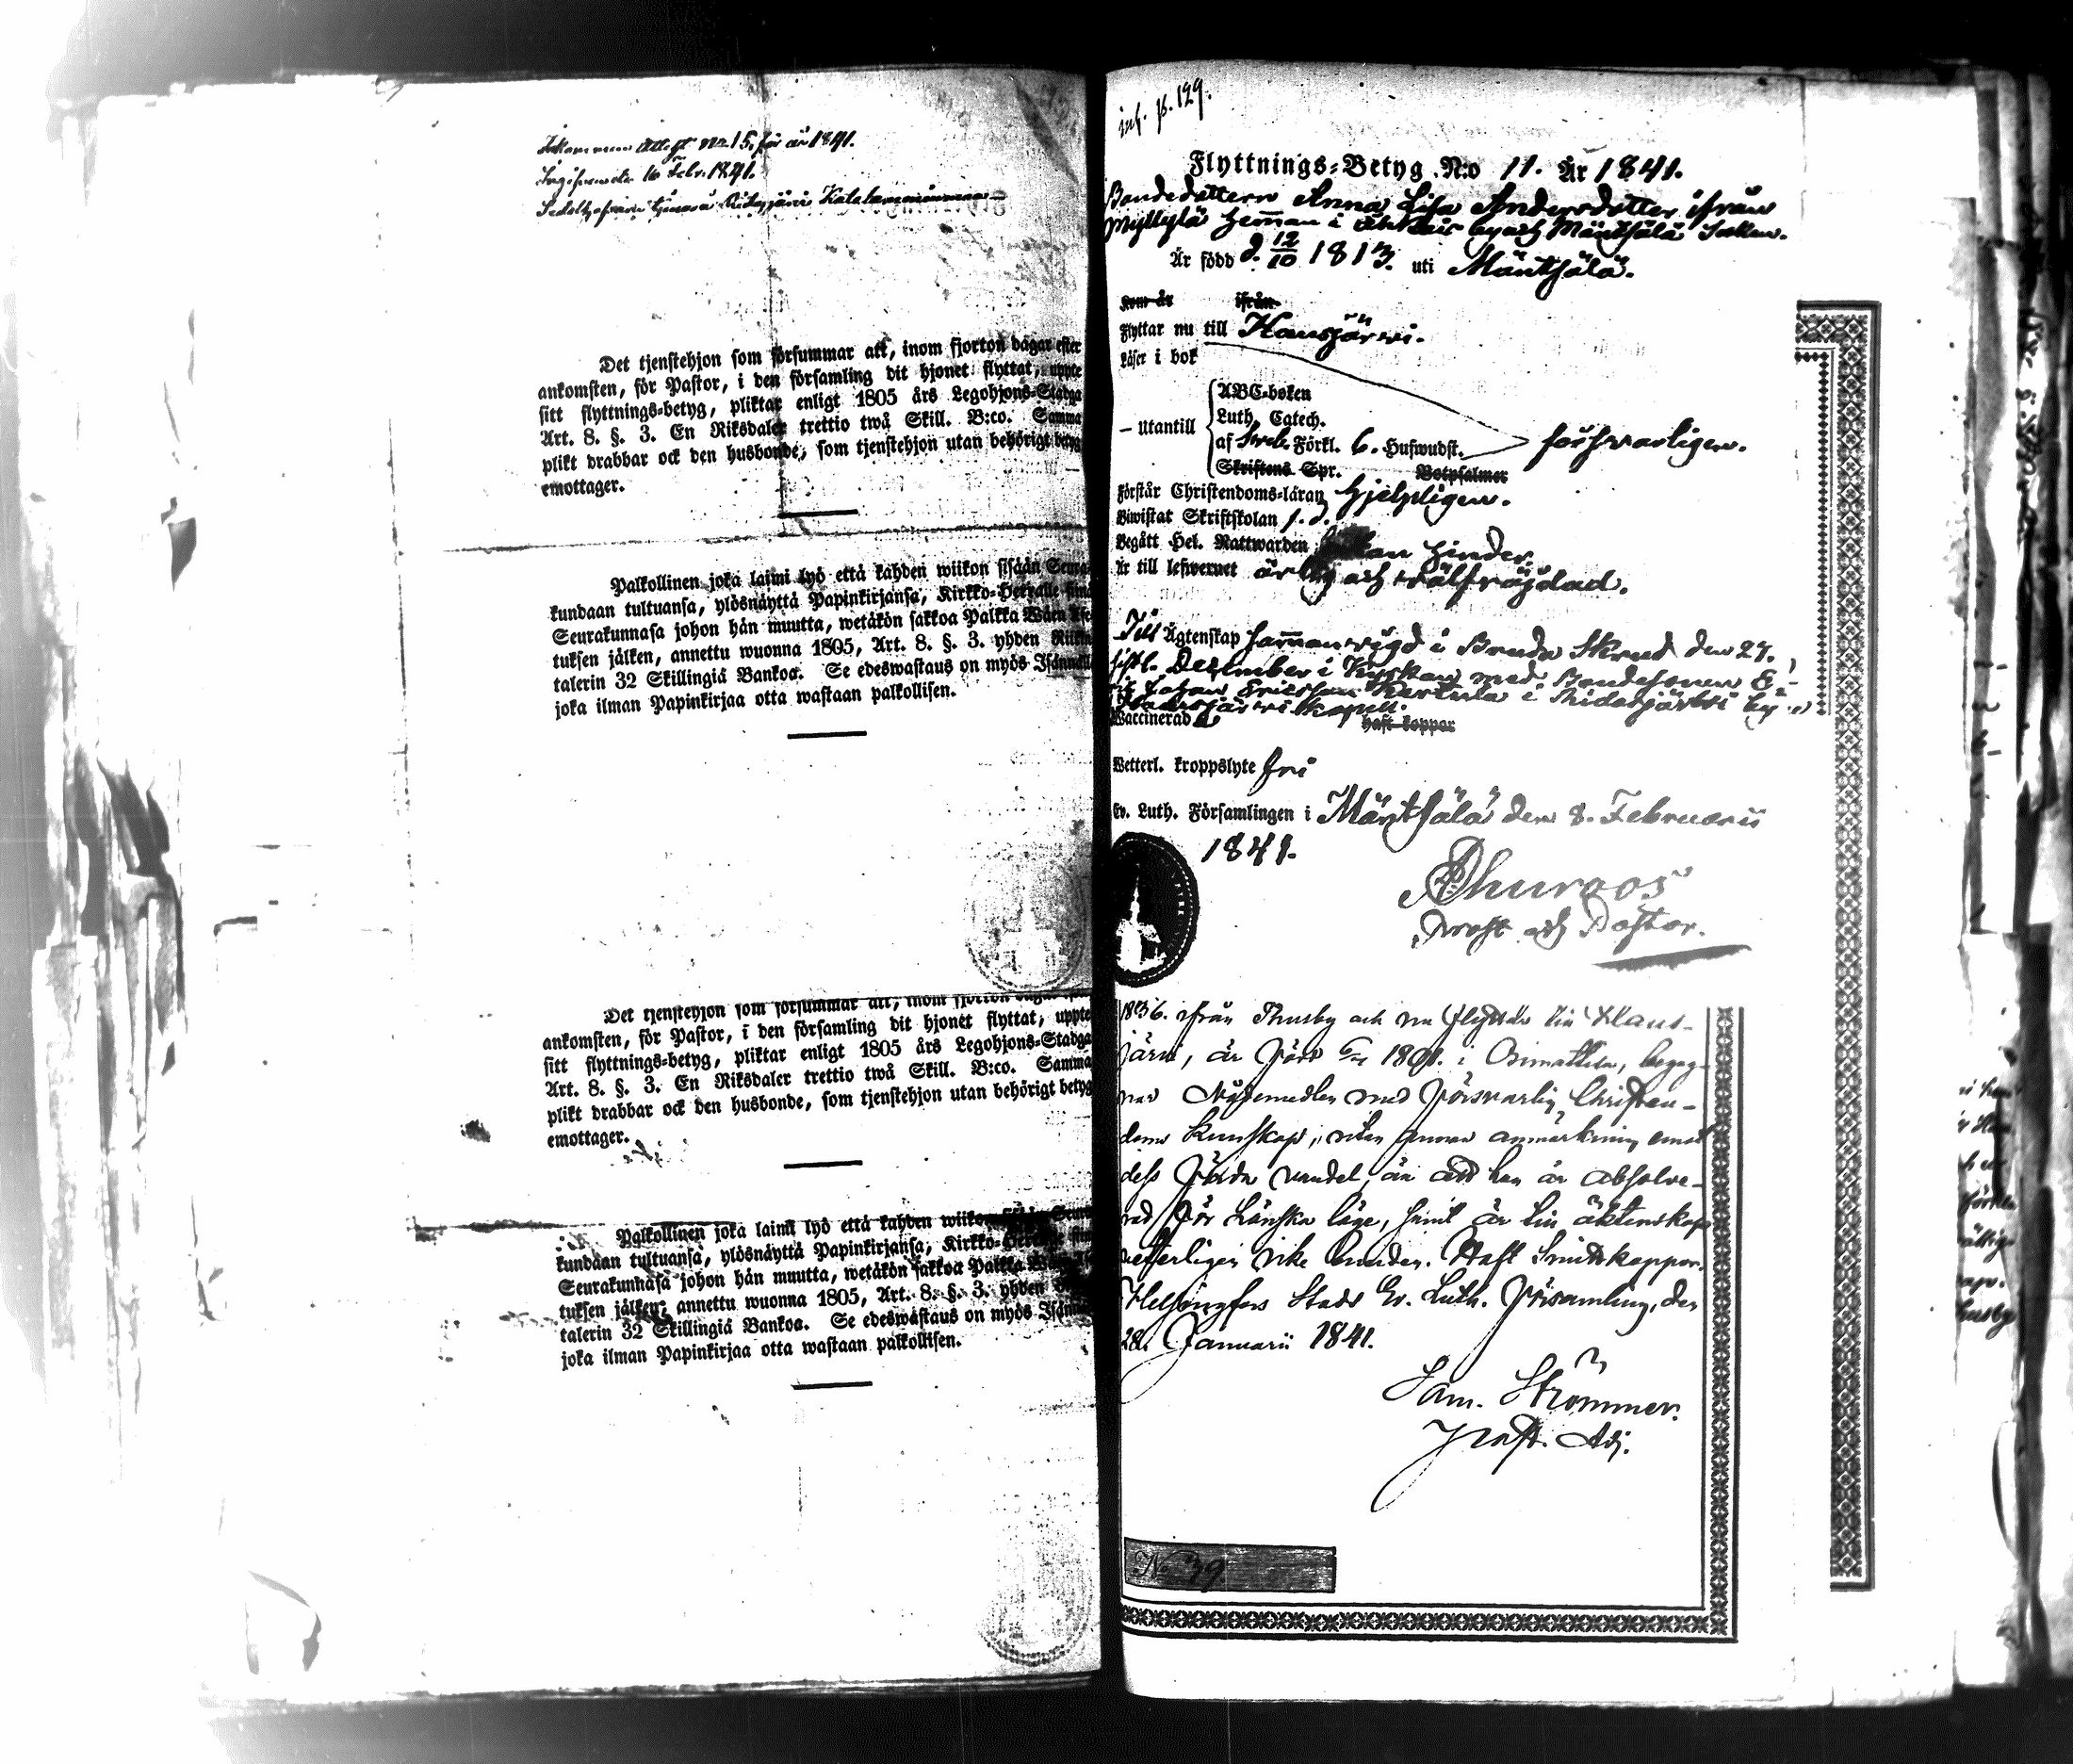 Inkommen Attest No 15, för år 1841.
Ingifven den 16 Febr. 1841.
Ridasjärvi
Det tjenstehjon som försummar att, inom fjorton dagar efter
ankomsten, för Pastor, i den församling dit hjonet flyttat, uppte
sitt flyttnings-betyg, pliktar enligt 1805 års Legohjons-Stadga
Art. 8. §. 3. En Riksdaler trettio twå Skill. B:co. Samma
plikt drabbar ock den husbonde, som tjenstehjon utan behörigt betyg
emottager.
Palkollinen joka laimi lyö että kahden wiikon sisään Seura-
kundaan tultuansa, ylösnäyttä Papinkirjansa, Kirkko-Herralle siinä
Seurakunnasa johon hän muutta, wetäkön sakkoa Palkka Wäen Ase-
tuksen jälken, annettu wuonna 1805, Art. 8. §. 3. yhden Riikin
talerin 32 Skillingiä Bankoa. Se edeswastaus on myös Isännällä
joka ilman Papinkirjaa otta wastaan palkollisen.
Det tjenstehjon som försummar att, inom fjorton dagar
ankomsten, för Pastor, i den församling dit hjonet flyttat, uppte
sitt flyttnings-betyg, pliktar enligt 1805 års Legohjons-Stadga
Art. 8. §. 3. En Riksdaler trettio twå Skill. B:co. Samma
plikt drabbar ock den husbonde, som tjenstehjon utan behörigt betyg
emottager.
Palkollinen joka laimi lyö että kahden wiikon sisään Seura
kundaan tultuansa, ylösnäyttä Papinkirjansa, Kirkko-Herralle siinä
Seurakunnasa johon hän muutta, wetäkön sakkoa Palkka Wäen
tuksen jälken, annettu wuonna 1805, Art. 8. §. 3. yhden
talerin 32 Skillingiä Bankoa. Se edeswastaus on myös Isännä
joka ilman Papinkirjaa otta wastaan palkollisen.
inf. p. 129.
Flyttnings-Betyg N:o 11. År 1841.
Bondedottern Anna Lisa Andersdotter ifrån
Myllylä Hemman i by och Mäntsälä Sokn.
Är född d. 12/10 1813. uti Mäntsälä.
Kom år ifrån
Flyttar nu till Hausjärvi.
Läser i bok
— utantill
ABC-boken
Luth. Catech.
af Sveb. Förkl. 6. Hufwudst.
Skriftens Spr. Botpsalmer
försvarligen.
Förstår Christendoms-läran hjelpligen.
Biwistat Skriftskolan j. d.
Begått Hel. Nattwarden utan hinder.
Är till lefwernet ärlig och välfräjdad.
Till Ägtenskap sammanvigd i Bruda Skrud den 27.
sistl. December i Kyrkan med Bondesonen E-
rik Johan Ericsson Kerttula i Ridasjärvi by
Hausjärvi Kapell.
Vaccinerad Haft koppor
Wetterl. kroppslyte fri
Ev. Luth. Församlingen i Mäntsälä den 8. Februarii
1841.
Prost och Pastor.
1836. ifrån Thusby och nu flyttar till Haus-
järvi, är född i Orimattila, begag-
nar Nådemedlen med försvarlig Christen-
doms kunskap, utan annan anmärkning emot
dess förda vandel, än att han är absolve-
rad för Lönska läge, samt är till äktenskap
veterligen icke bunden. Haft Smittkoppor.
Helsingfors Stads Ev. Luth. Församling, den
28. Januarii 1841.
Sam. Strömmer.
Past. Adj.
No 39